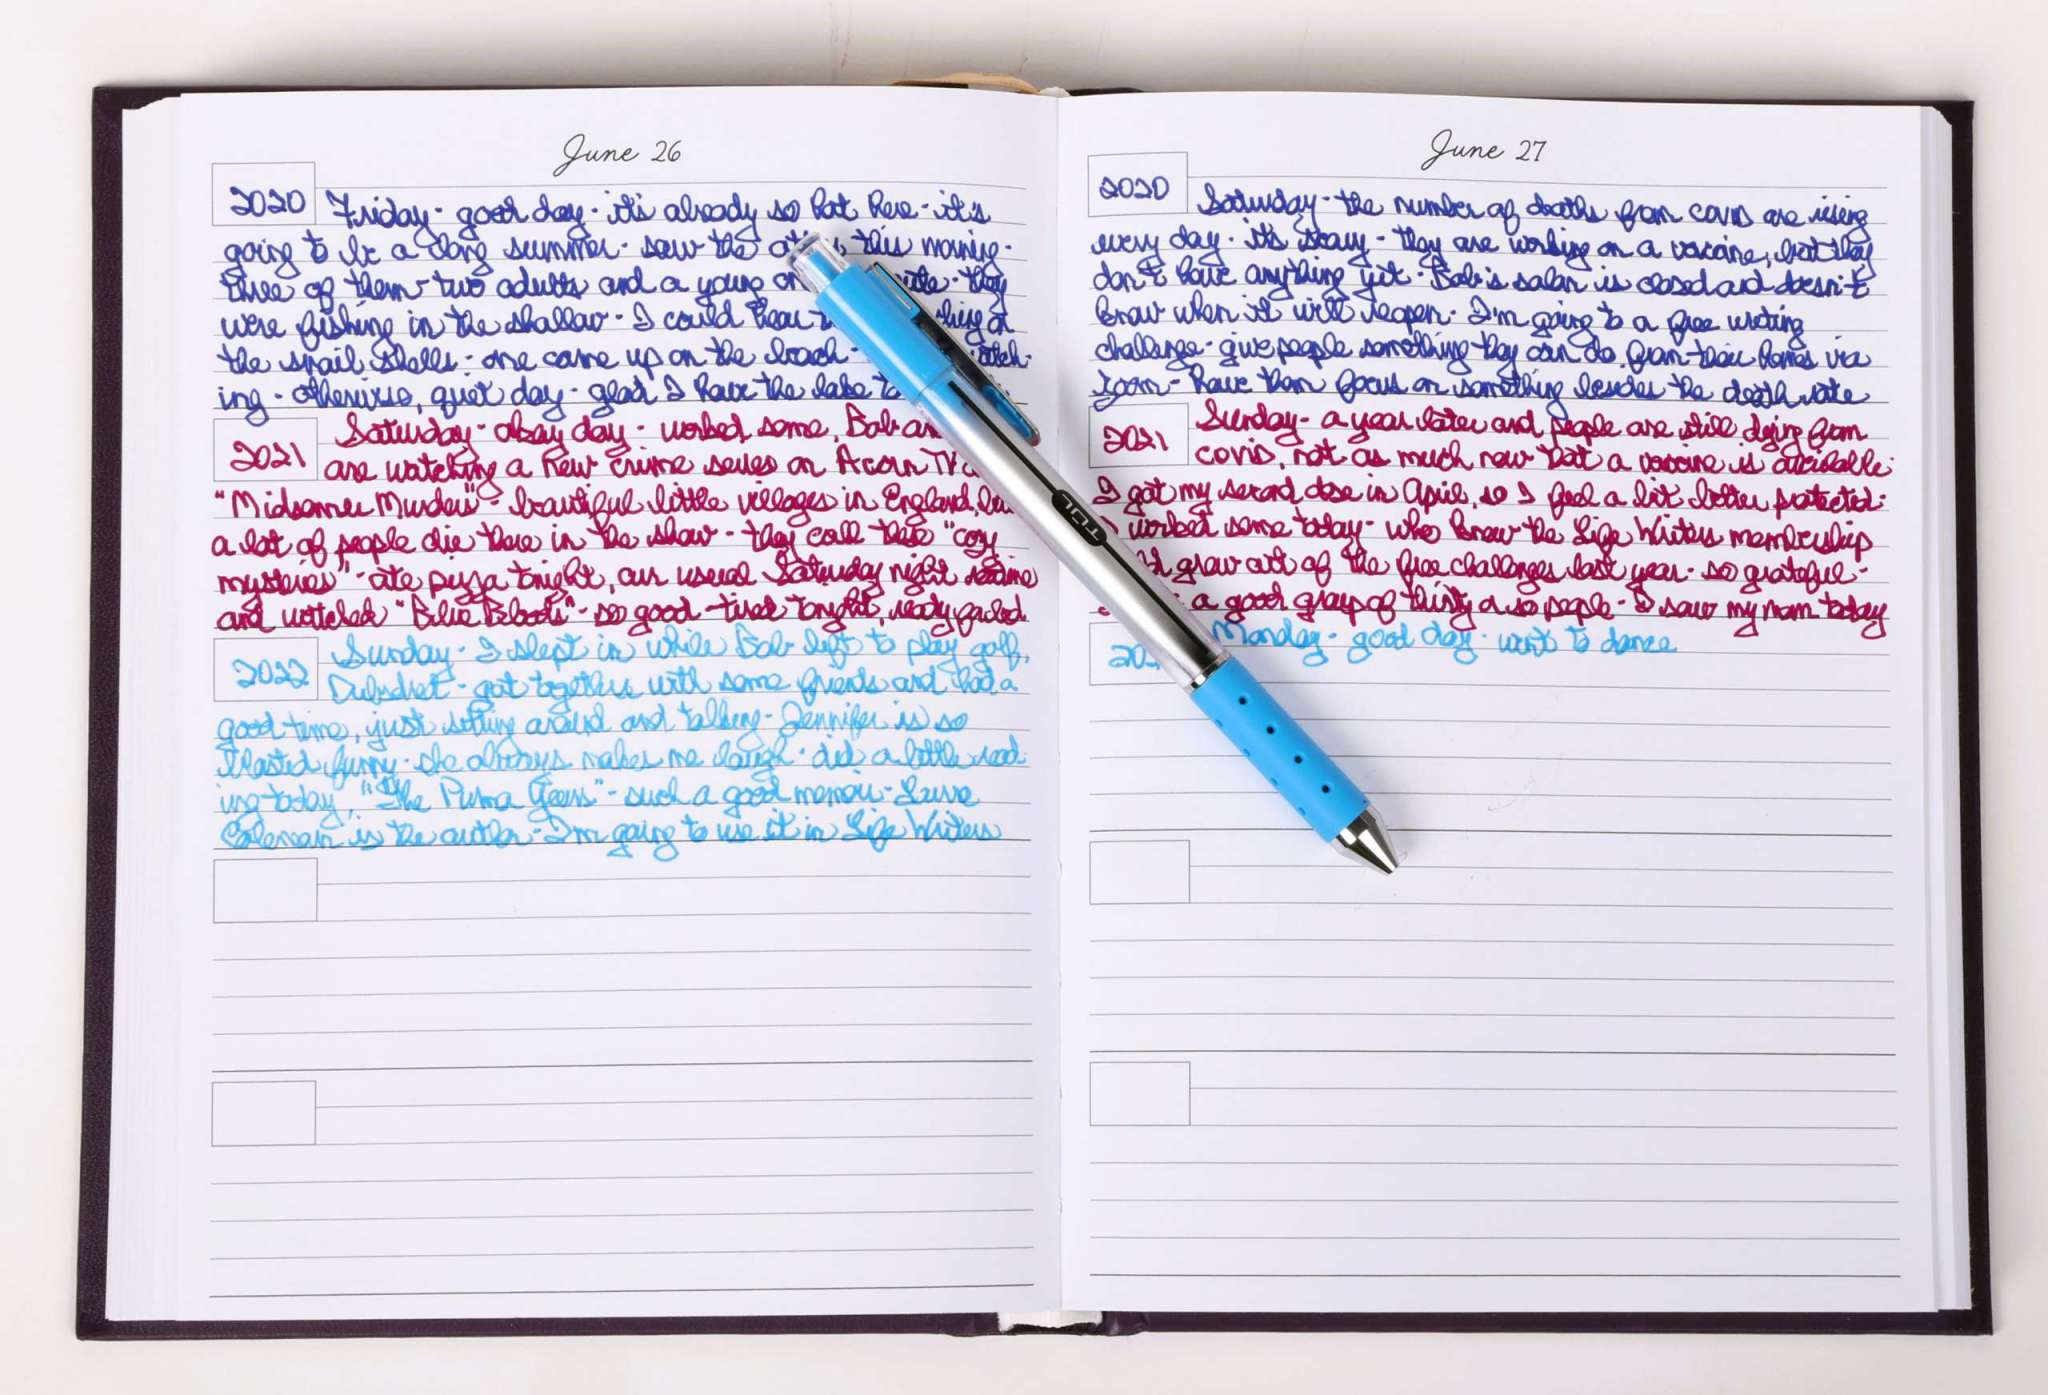 June 26
2020 Friday - good day - it's already so hot here - it's
going to be a long summer - saw the this morning -
three of them - two adults and a young - they
were fishing in the shallow - I could hear on
the snail shells - one came up on the beach -
ing - otherwise, quiet day - glad I have the lake
2021 Saturday - okay day - worked some, Bob
are watching a new crime series on Acorn TV
"Midsomer Murders" - beautiful little villages in England,
a lot of people die there in the show - they call these "cozy
mysteries" - ate pizza tonight, our usual Saturday night routine
and watched "Blue Bloods" - so good - tired tonight, ready for bed
2022 Sunday - I slept in while Bob left to play golf,
Dubsdread - got together with some friends and had a
good time, just sitting around and talking - Jennifer is so
blasted funny - she always makes me laugh - did a little read
ing today, "The Puma Years" - such a good memoir - Laura
Coleman is the author - I'm going to use it in Life Writers
June 27
2020 Saturday - the number of deaths from covid are rising
every day - it's scary - they are working on a vaccine, but they
don't have anything yet - Bob's salon is closed and doesn't
know when it will reopen - I'm going to a free writing
challenge - give people something they can do from their homes via
zoom - have them focus on something besides the death rate
2021 Sunday - a year later and people are still dying from
covid, not as much now that a vaccine is available -
I got my second dose in April, so I feel a bit better protected -
I worked some today - who knew the Life Writers membership
grew out of the free challenges last year - so grateful -
a good group of thirty or so people - I saw my mom today
Monday - good day - went to dance